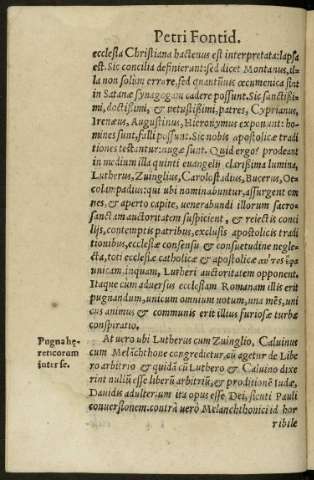 Petri Fontid.
ecclesia Christiana hactenus est interpretata: lapsa
est. Sic concilia definierant: sed dicet Montanus, il-
la non solùm errore, sed quantũuis œcumenica sint
in Satanæ synagogam cadere possunt. Sic sanctißi-
mi, doctißimi, & vetustißimi, patres, Cyprianus,
Irenæus, Augustinus, Hieronymus exponunt: ho-
mines sunt, falli possunt. Sic nobis apostolicæ tradi
tiones testantur: nugæ sunt. Quid ergo? prodeant
in medium illa quinti euangelij clarißima lumina,
Lutherus, Zuinglius, Carolostadius, Bucerus, Oe-
colampadius: qui ubi nominabuntur, assurgent om
nes, & aperto capite, uenerabundi illorum sacro-
sanctam auctoritatem suspicient, & reiectis conci
lijs, contemptis patribus, exclusis apostolicis tradi
tionibus, ecclesiæ consensu & consuetudine negle-
cta, toti ecclesiæ catholicæ & apostolicæ
unicam, inquam, Lutheri auctoritatem opponent.
Itaque cum aduersus ecclesiam Romanam illis erit
pugnandum, unicum omnium uotum, una mẽs, uni
cus animus & communis erit illius furiosæ turbæ
conspiratio.
Pugna hæ-
reticorum
inter se.
At uero ubi Lutherus cum Zuinglio, Caluinus
cum Melãchthone congredietur, cũ agetur de Libe
ro arbitrio & quidã cũ Luthero & Caluino dixe
rint nullũ esse liberũ arbitriũ, & proditionẽ Iudæ,
Dauidis adulterium ita opus esse Dei, sicuti Pauli
conuersionem. contrà uerò Melanchthonici id hor
ribile